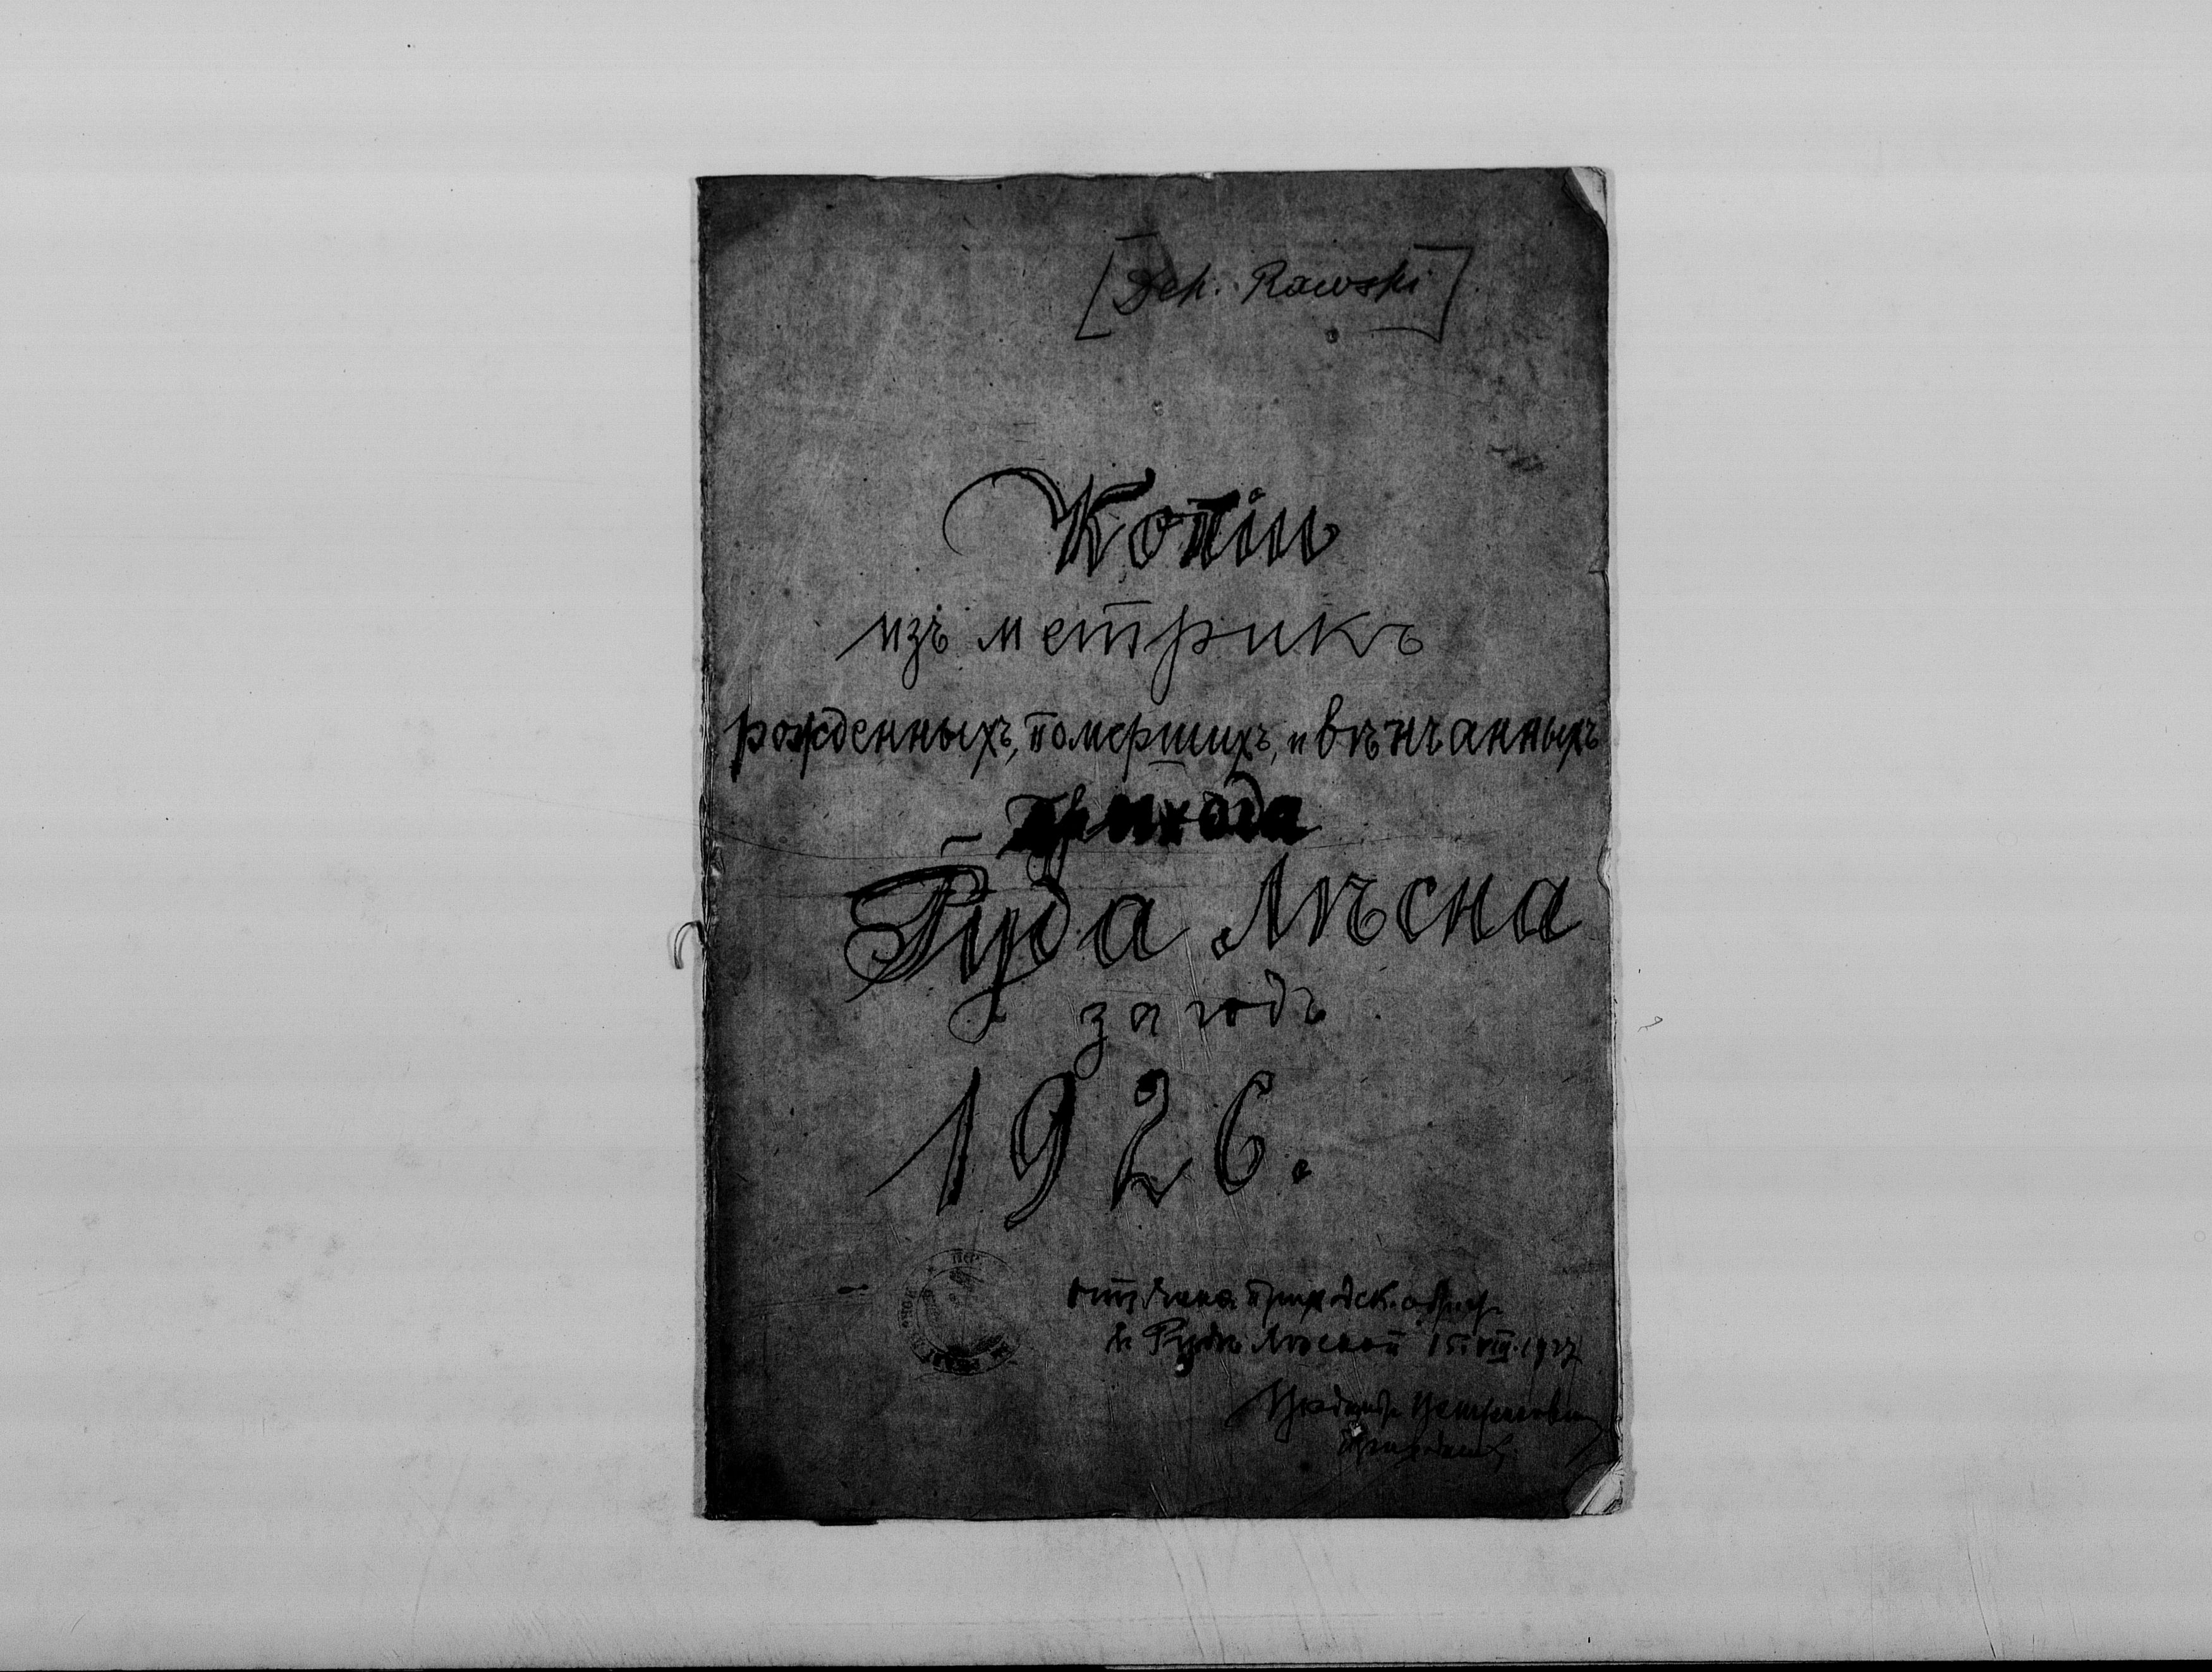 [Dek. Rawski]
Копіи
изъ метрикъ
рожденныхъ, помершихъ, и вѣнчанныхъ
прихода
Руда Лѣсна
за годъ
1926.
приходск. 
в Рудѣ Лѣсной 15.VIII.1927